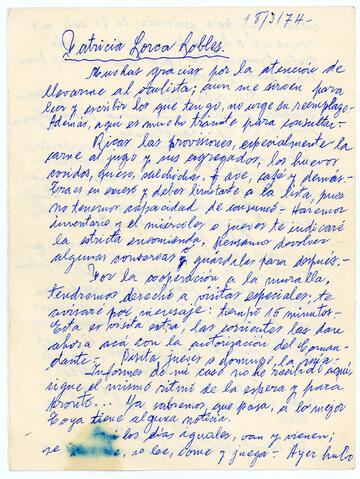 18/3/74.-
Patricia Lorca Robles.
Muchas gracias por la atención de
llevarme al oculista; aun me sirven para
leer y escribir los que tengo, no urge su reemplazo.
Además, aquí es mucho trámite para consultar.-
Ricas las provisiones, especialmente la
carne al jugo y sus agregados, los huevos
cocidos, queso, salchichas, ave, café y demás.-
Eraes en exceso y debes limitarte a la lista, pues
no tenemos capacidad de consumo.- Haremos
inventario y el miércoles o jueves te indicaré
la estricta encomienda, pensamos devolver
algunas conservas guárdalas para después.-
Por la cooperación a la muralla,
tendremos derecho a visitas especiales, te
avisaré por mensaje: tiempo 15 minutos.-
Esta es visita extra, las corrientes las dan
ahora acá con la autorización del Coman-
dante.- Punta, jueves o domingo, la suya.-
Informes de mi caso no he recibido aquí,
sigue el mismo ritmo de la espera y para
pronto... Ya sabremos que pasa, a lo mejor
Goya tiene alguna noticia.
los días iguales, van y vienen;
se lee, come y juega.- Ayer hubo